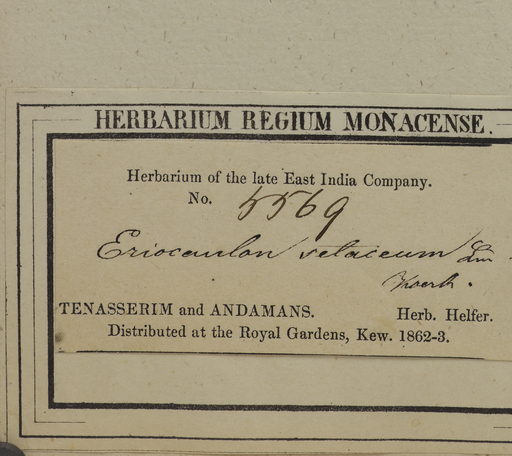 HERBARIUM REGIUM MONACENSE.
Herbarium of the late East India Company.
No. 5569
Eriocaulon setaceum Lin
Koerk.
TENASSERIM and ANDAMANS. Herb. Helfer.
Distributed at the Royal Gardens, Kew. 1862-3.